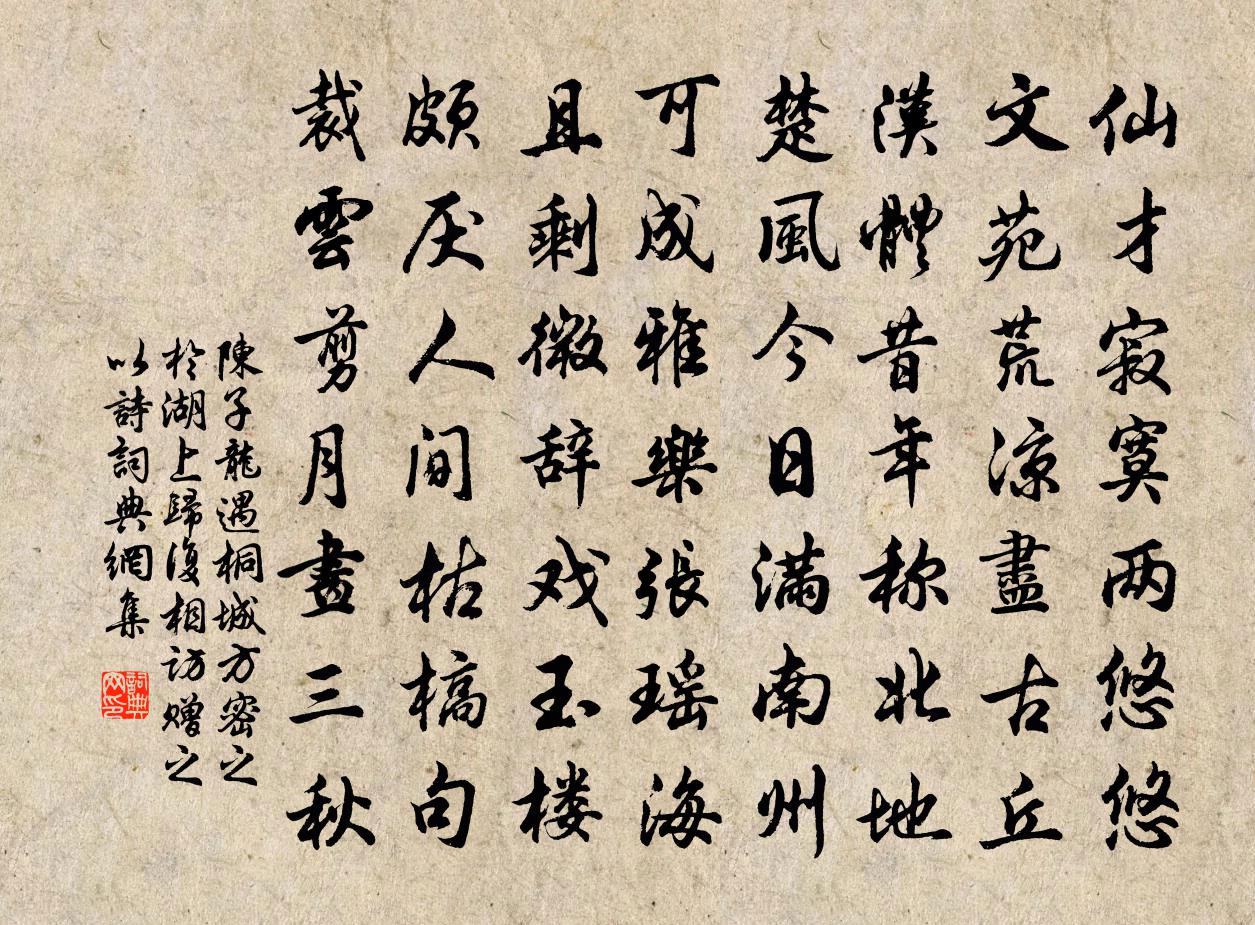 仙才寂寞两悠悠
文苑荒凉盡古丘
漢體昔年称北地
楚風今日满南州
可成雅樂張瑶海
且剩微辞戏玉楼
颇厌人间枯槁句
裁雲剪月畫三秋
陳子龍遇桐城方密之
於湖上歸復相访赠之
以詩詞典網集
詞典
网印